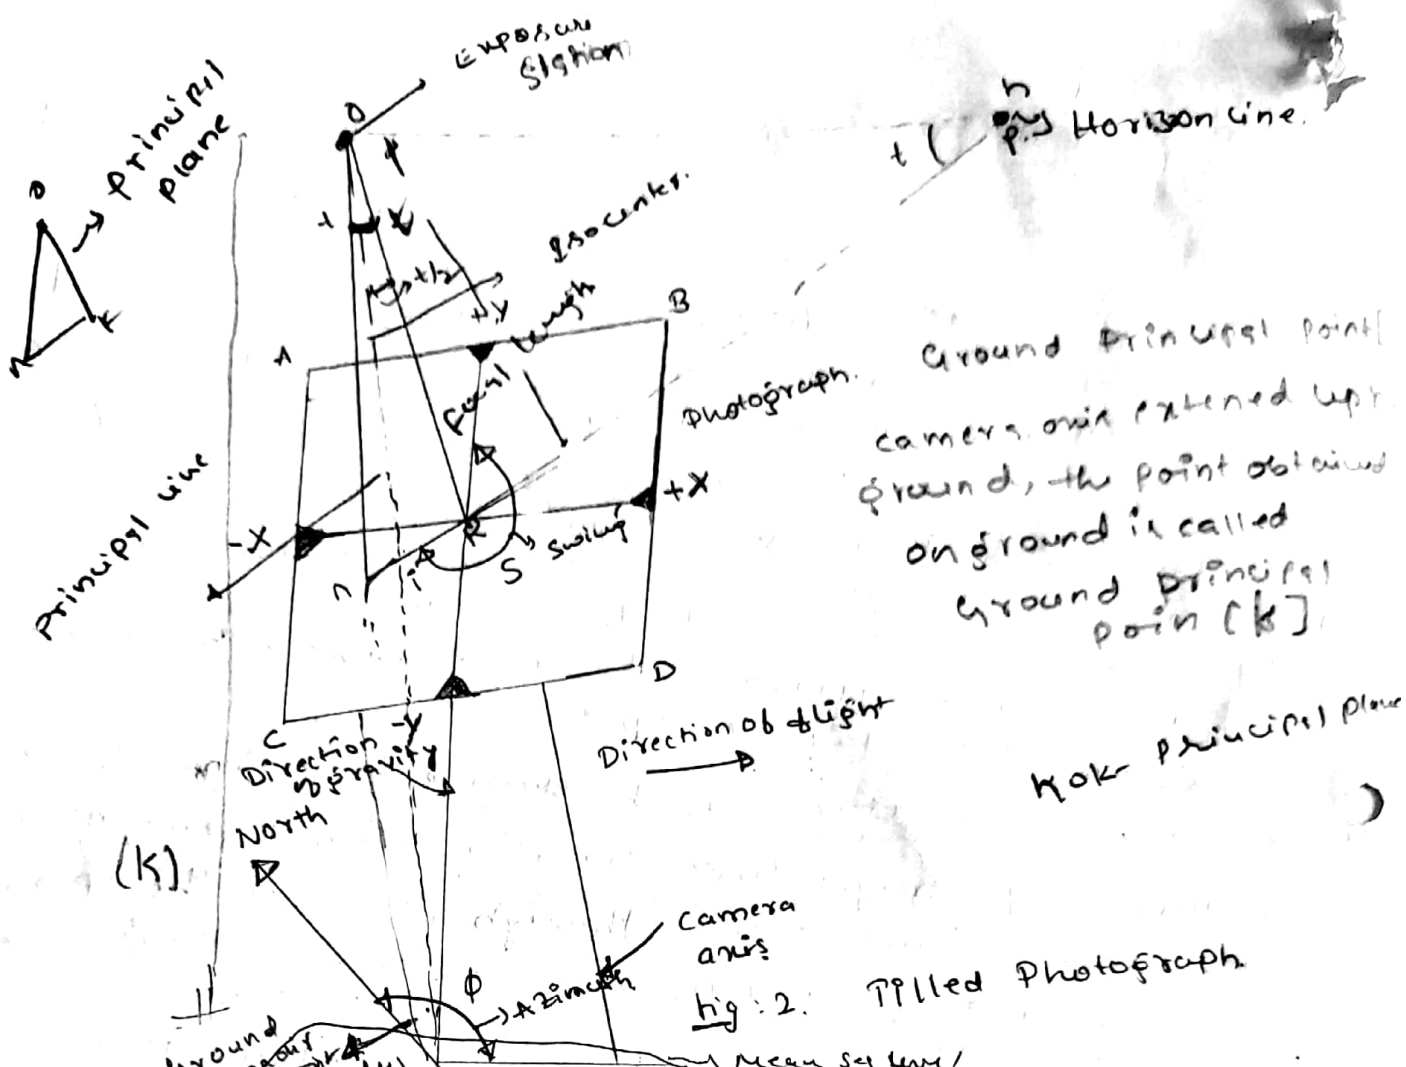 Exposure
Station
O
h
Horizon Line.
t
Principal
plane
O
n
K
t
t/2
Isocenter.
+Y
Focal
length
A
B
Photograph.
Ground Principal Point
camera axis extened upt
ground, the point obtained
on ground is called
Ground Principal
poin (k)
Principal Line
-X
+X
K
n
i
S
Swing
C
-Y
D
Direction
of gravity
Direction of flight
nok- Principal plane
North
(K)
Camera
axis
ϕ
Azimuth
fig: 2. Tilled Photograph
Ground
Mean sea level